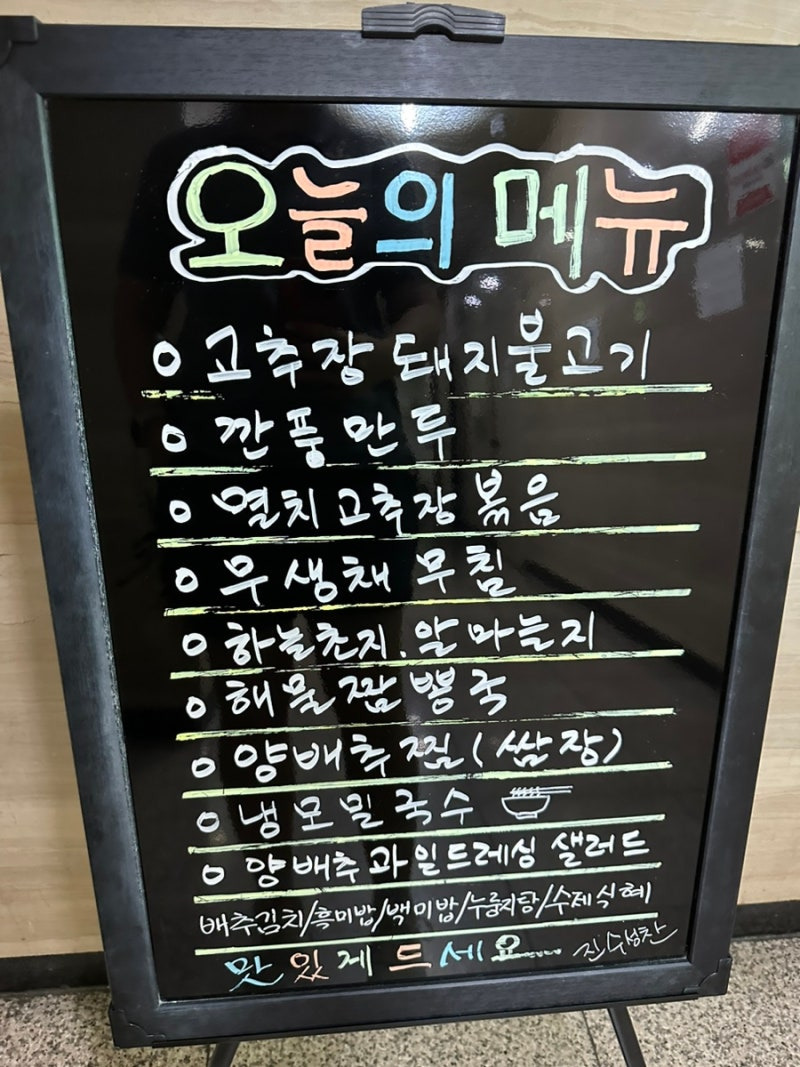 오늘의 메뉴
o 고추장 돼지불고기
o 깐풍만두
o 멸치고추장볶음
o 무생채무침
o 하늘초지.알마늘지
o 해물짬뽕국
o 양배추찜(쌈장)
o 냉모밀국수
o 양배추과일드레싱 샐러드
배추김치/흑미밥/백미밥/누룽지탕/수제식혜
맛있게드세요..... 진수성찬